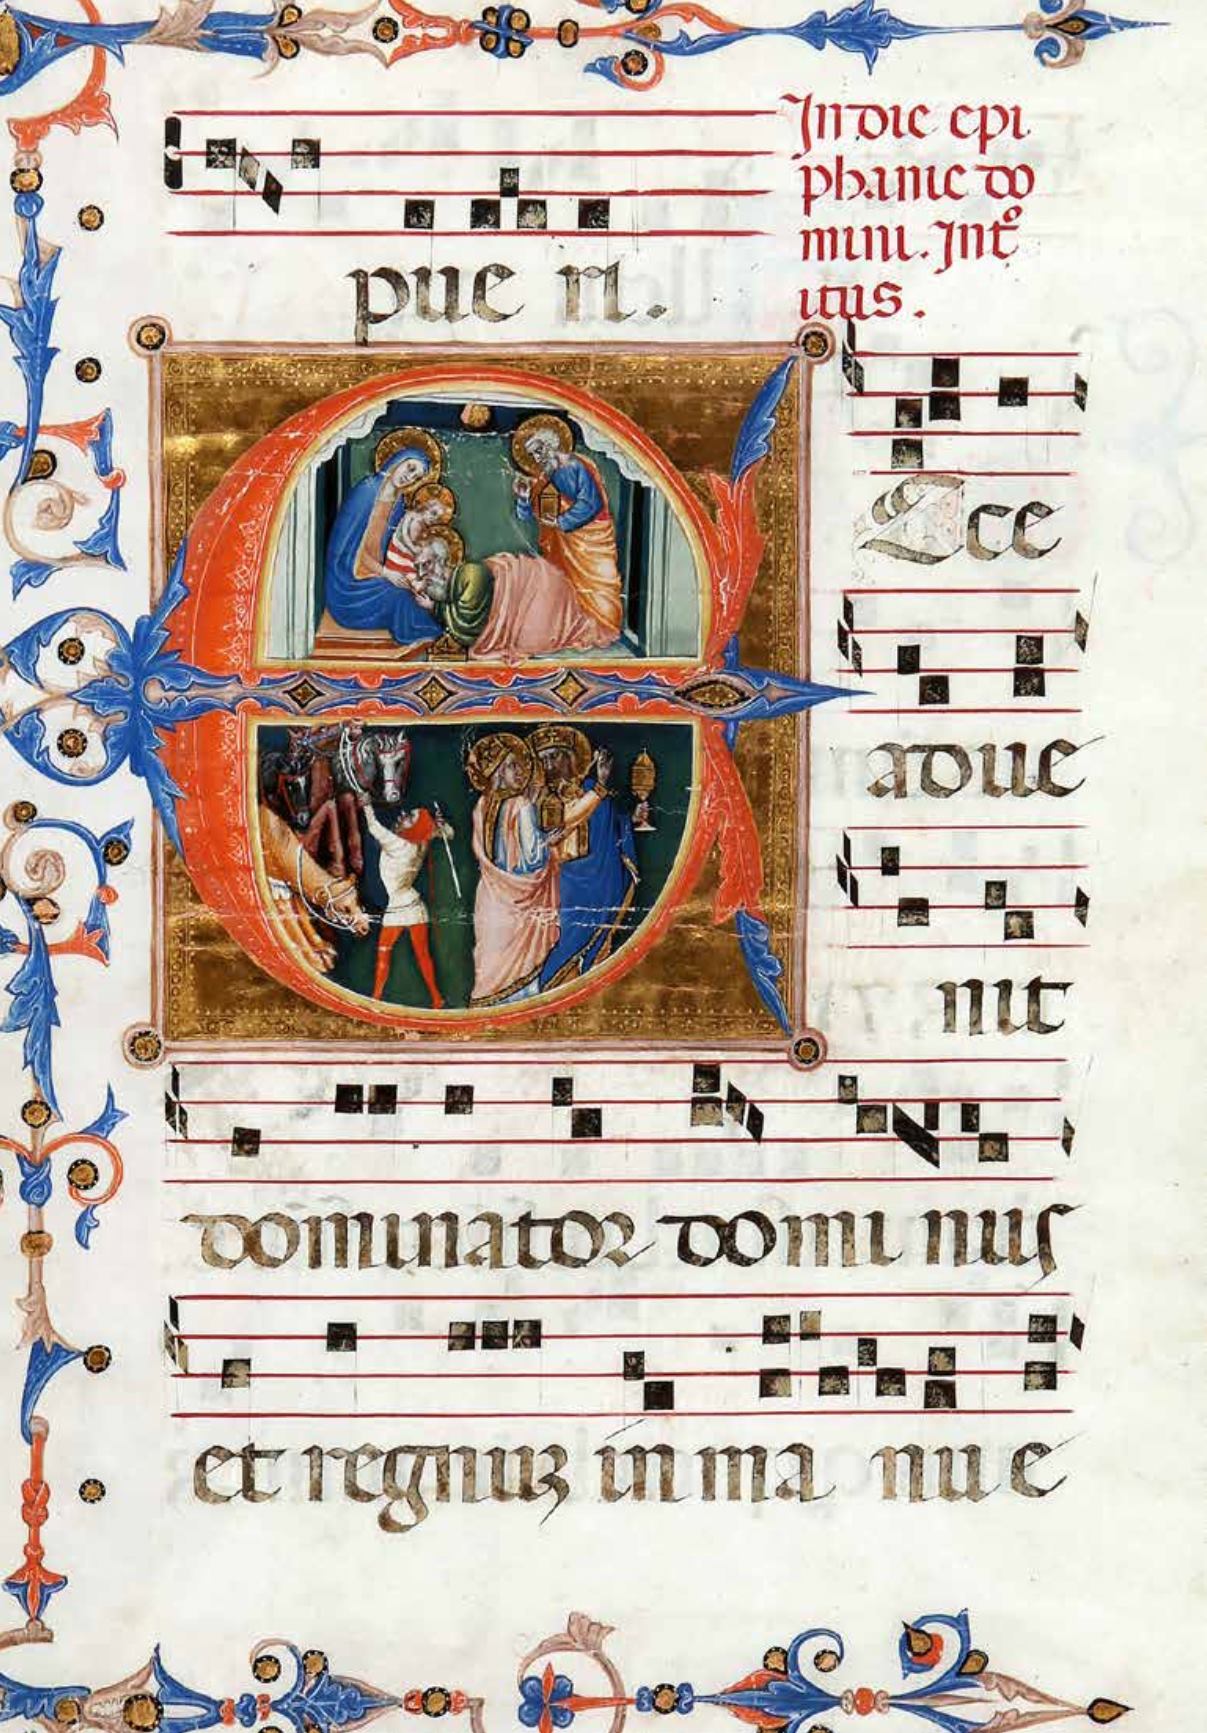 pue ri.
In die epi
phanie do
mini. Int°
itus.
Ecce
adue
nit
dominator domi nus
et regnuꝫ in ma nu e